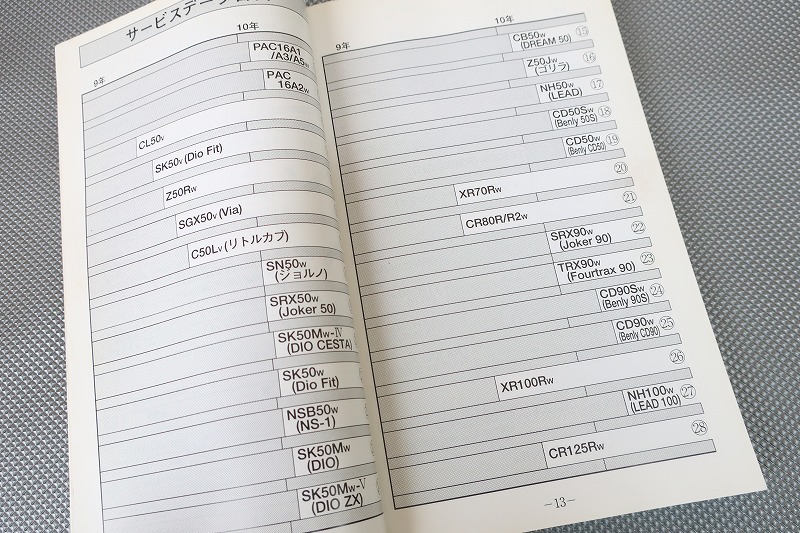 サービスデータ
9年
10年
PAC16A1
/A3/A5W
PAC
16A2W
CL50V
SK50V (Dio Fit)
Z50RW
SGX50V (Via)
C50LV (リトルカブ)
SN50W
(ジョルノ)
SRX50W
(Joker 50)
SK50MW-Ⅳ
(DIO CESTA)
SK50W
(Dio Fit)
NSB50W
(NS-1)
SK50MW
(DIO)
SK50MW-Ⅴ
(DIO ZX)
9年
10年
CB50W
(DREAM 50)
⑮
Z50JW
(ゴリラ)
⑯
NH50W
(LEAD)
⑰
CD50SW
(Benly 50S)
⑱
CD50W
(Benly CD50)
⑲
⑳
XR70RW
㉑
CR80R/R2W
SRX90W
(Joker 90)
㉒
TRX90W
(Fourtrax 90)
㉓
CD90SW
(Benly 90S)
㉔
CD90W
(Benly CD90)
㉕
㉖
XR100RW
NH100W
(LEAD 100)
㉗
㉘
CR125RW
－13－